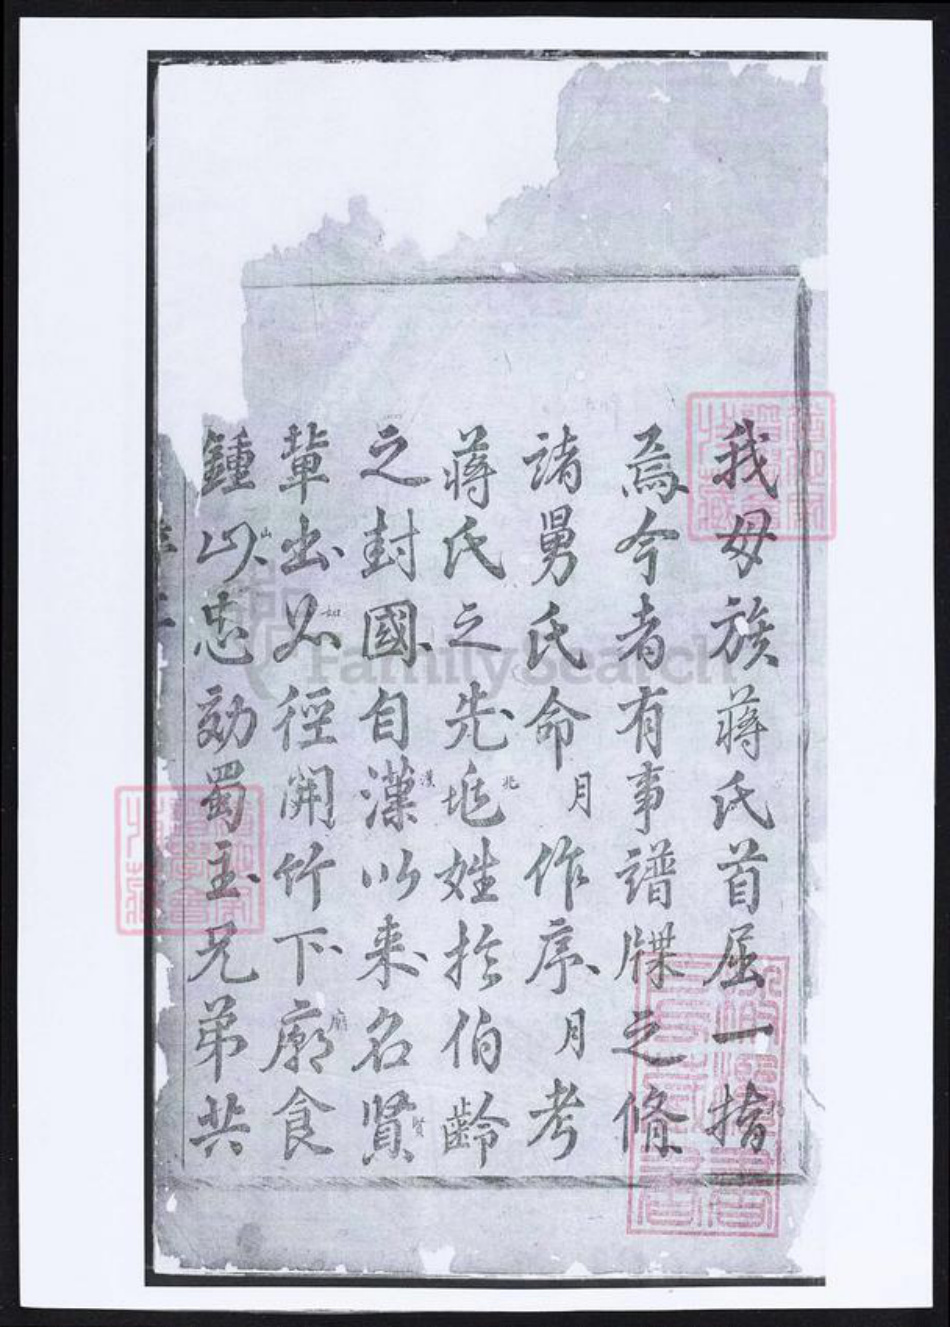 我母族蔣氏首屈一指
焉今者有事譜牒之脩
諸舅氏命月作序月考
蔣氏之先㐀姓扵伯齡
之封國自漢以来名賢
輩出如徑開竹下廟食
鍾山以忠効蜀主兄弟共
漢
如
山
賢
FamilySearch